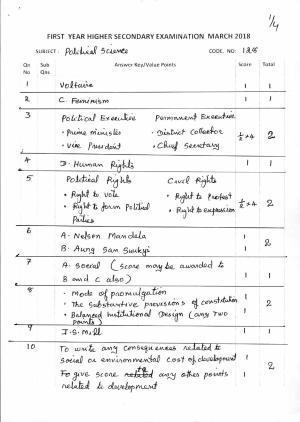 1/4
FIRST YEAR HIGHER SECONDARY EXAMINATION MARCH 2018
SUBJECT: Political Science CODE. NO: 128
Qn No Sub Qns Answer Key/Value Points Score Total
1 Voltaire 1 1
2 C. Feminism 1 1
3 Political Executive Permanent Executive
• Prime minister • District Collector ½ × 4 2
• Vice President • Chief Secretary
4 D. Human Rights 1 1
5 Political Rights Civil Rights
• Right to Vote • Right to Protest ½ × 4 2
• Right to form Political • Right to expression
Parties
6 A. Nelson Mandela 1
B. Aung San Suukyi 1 2
7 A. Social (Score may be awarded to 1 1
B and C also)
8 • Mode of promulgation 1
• The substantive provisions of constitution 2
• Balanced Institutional Design (any two 1
points)
9 J.S. Mill 1 1
10 To write any consequences related to 1
social or environmental cost of development 2
To give score to any other points 1
related to development